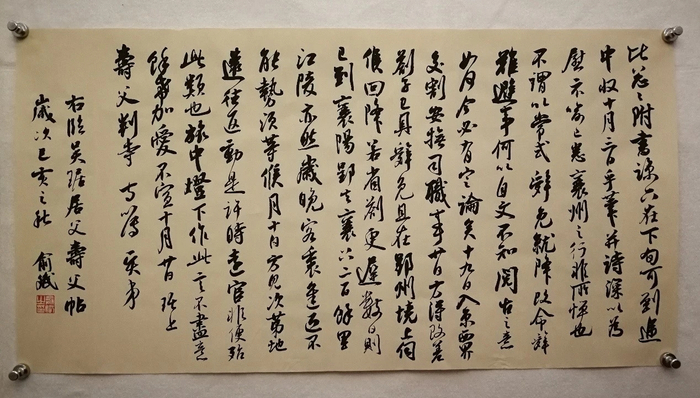 比忽忽附書諒只在下旬可到適
中收十月三日手筆并詩深以為
慰示喻已悉襄州之行非所憚也
不謂以常式辭免就降改命之辭
難避事何以自文不知閱古之意
如何今必有定論矣十九日入京西界
交割安撫司職事廿日方得改差
劄子已具辭免且在鄂州境上伺
候回降若省劄更遲數日則
已到襄陽鄂去襄六七百餘里
江陵亦然歲晚客裏不
能勢須等候月十日方見次第地
遠往返動是許時遠宦非便殆
此類也旅中燈下作此言不盡意
餘希加愛不宣十月廿日琚上
壽父判寺
右臨吳琚居父壽父帖
歲次己亥之秋 俞斌